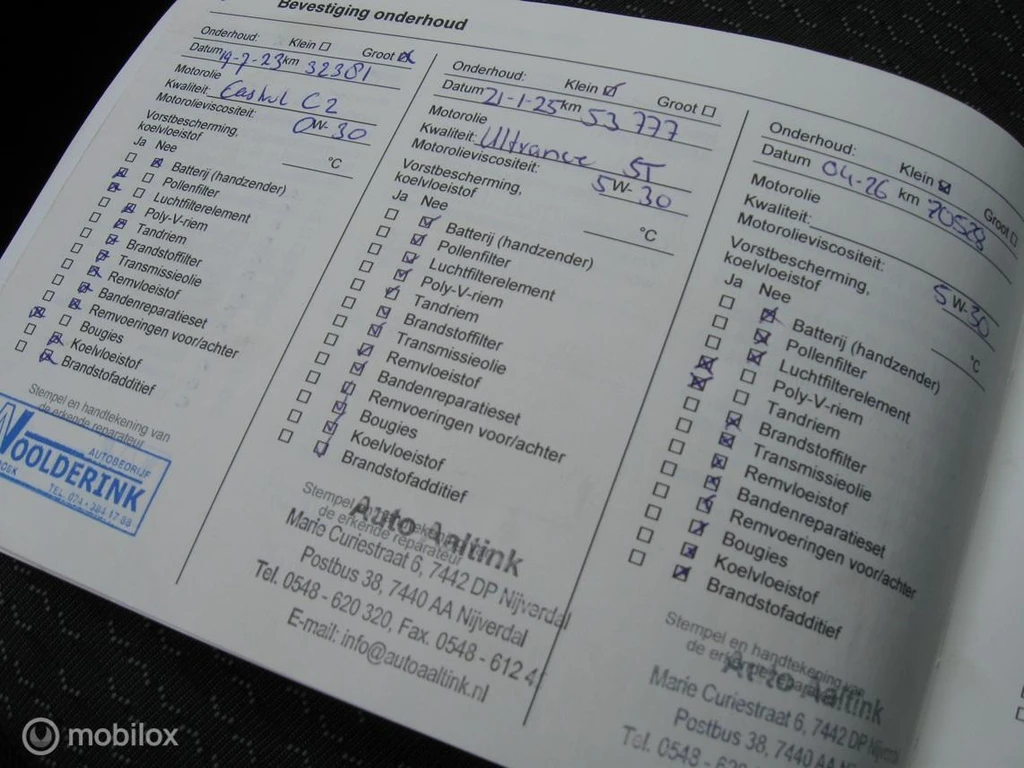 Bevestiging onderhoud
Onderhoud: Klein Groot
Datum 19-7-23 km 32381
Motorolie
Kwaliteit: Castrol C2
Motorolieviscositeit: 0W-30
Vorstbescherming,
koelvloeistof °C
Ja Nee
Batterij (handzender)
Pollenfilter
Luchtfilterelement
Poly-V-riem
Tandriem
Brandstoffilter
Transmissieolie
Remvloeistof
Bandenreparatieset
Remvoeringen voor/achter
Bougies
Koelvloeistof
Brandstofadditief
Stempel en handtekening van
de erkende reparateur
AUTOBEDRIJF
NOOLDERINK
TEL. 074 - 264 17 88
Onderhoud: Klein Groot
Datum 21-1-25 km 53777
Motorolie
Kwaliteit: Ultrance 5T
Motorolieviscositeit: 5W-30
Vorstbescherming,
koelvloeistof °C
Ja Nee
Batterij (handzender)
Pollenfilter
Luchtfilterelement
Poly-V-riem
Tandriem
Brandstoffilter
Transmissieolie
Remvloeistof
Bandenreparatieset
Remvoeringen voor/achter
Bougies
Koelvloeistof
Brandstofadditief
Stempel en handtekening
de erkende reparateur
Auto Aaltink
Marie Curiestraat 6, 7442 DP Nijverdal
Postbus 38, 7440 AA Nijverdal
Tel. 0548 - 620 320, Fax. 0548 - 612 4
E-mail: info@autoaaltink.nl
Onderhoud: Klein Groot
Datum 04-26 km 70528
Motorolie
Kwaliteit:
Motorolieviscositeit: 5W-30
Vorstbescherming,
koelvloeistof °C
Ja Nee
Batterij (handzender)
Pollenfilter
Luchtfilterelement
Poly-V-riem
Tandriem
Brandstoffilter
Transmissieolie
Remvloeistof
Bandenreparatieset
Remvoeringen voor/achter
Bougies
Koelvloeistof
Brandstofadditief
Stempel en handtekening van
de erkende
Auto Aaltink
Marie Curiestraat 6, 7442 DP Nijverdal
Postbus 38, 7440 AA Nijverdal
Tel. 0548 - 620
mobilox